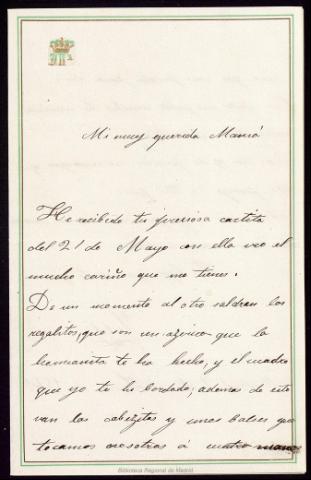 Mi muy querida Mamá
He recibido tu preciosa cartita
del 21 de Mayo con ella veo el
mucho cariño que me tienes.
De un momento al otro saldran los
regalitos, que son un que la
hermanita te ha hecho, y el cuadro
que yo te he bordado, ademas de esto
van las obejitas y unos balses que
tocamos nosotras á cuatro manos
Biblioteca Regional de Madrid